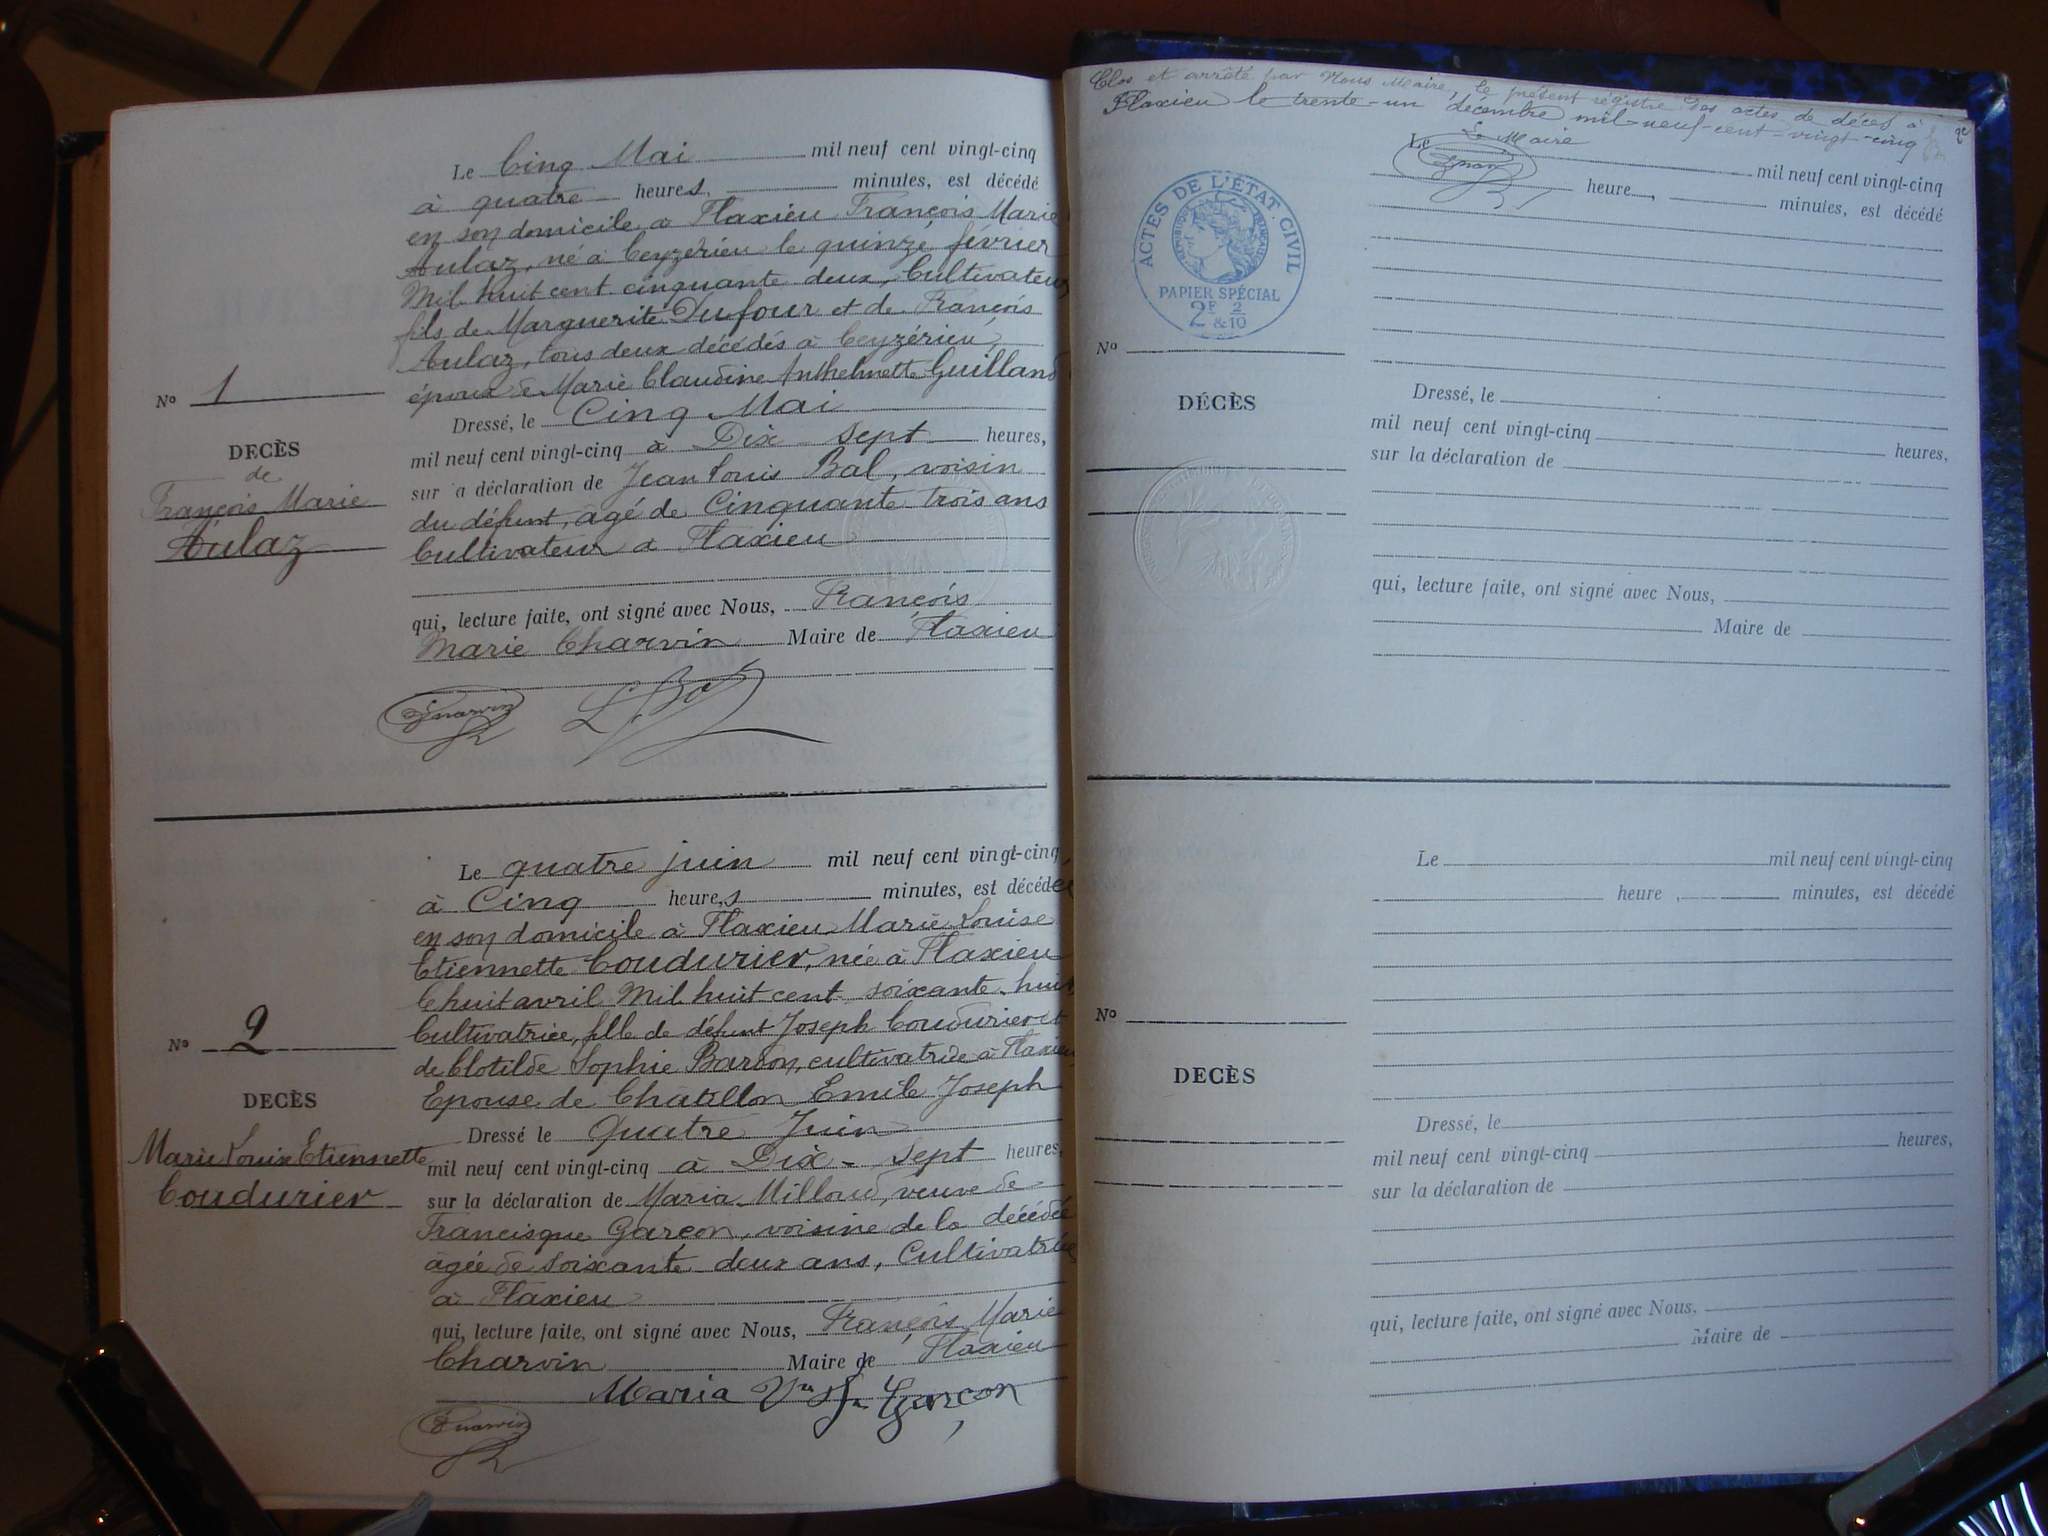 Le Cinq Mai mil neuf cent vingt-cinq
à quatre heures, minutes, est décédé
en son domicile à Flaxieu François Marie
Aulaz, né à Ceyzérieu le quinze février
Mil huit cent cinquante deux, Cultivateur
fils de Marguerite Dufour et de François
Aulaz, tous deux décédés à Ceyzérieu,
époux de Marie Claudine Anthelmette Guilland
No 1
DECÈS
de
François Marie
Aulaz
Dressé, le Cinq Mai
mil neuf cent vingt-cinq à Dix-sept heures,
sur la déclaration de Jean Louis Bal, voisin
du défunt, âgé de Cinquante trois ans
Cultivateur à Flaxieu
qui, lecture faite, ont signé avec Nous, François
Marie Charvin Maire de Flaxieu
Charvin L. Bal
Le quatre juin mil neuf cent vingt-cinq
à Cinq heures, minutes, est décédée
en son domicile à Flaxieu Marie Louise
Etiennette Coudurier, née à Flaxieu
le huit avril Mil huit cent soixante-huit
Cultivatrice, fille de défunt Joseph Coudurier et
de Clotilde Sophie Barron, cultivatrice à Flaxieu
Epouse de Châtillon Emile Joseph
No 2
DECÈS
Marie Louise Etiennette
Coudurier
Dressé le Quatre Juin
mil neuf cent vingt-cinq à Dix-sept heures,
sur la déclaration de Maria Milloud, veuve de
Francisque Garçon, voisine de la décédée
âgée de soixante-deux ans, Cultivatrice
à Flaxieu
qui, lecture faite, ont signé avec Nous, François Marie
Charvin Maire de Flaxieu
Maria Vve Garçon
Charvin
Clos et arrêté par Nous Maire, le présent régistre des actes de décès à
Flaxieu le trente-un décembre mil-neuf-cent-vingt-cinq
Le Maire
ACTES DE L'ÉTAT CIVIL
PAPIER SPÉCIAL
2F & 2/10
Le mil neuf cent vingt-cinq
heure, minutes, est décédé
No
DÉCÈS
Dressé, le
mil neuf cent vingt-cinq heures,
sur la déclaration de
qui, lecture faite, ont signé avec Nous,
Maire de
Le mil neuf cent vingt-cinq
heure , minutes, est décédé
No
DECÈS
Dressé, le
mil neuf cent vingt-cinq heures,
sur la déclaration de
qui, lecture faite, ont signé avec Nous.
Maire de